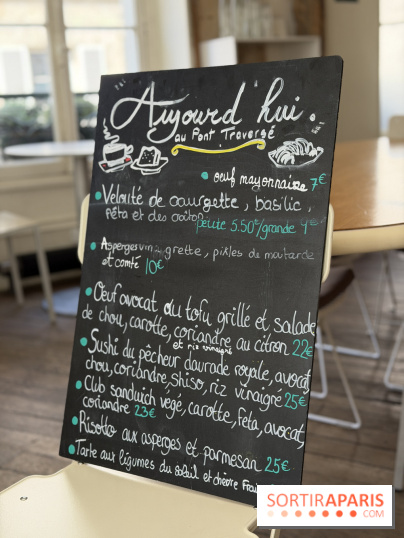 Aujourd'hui.
au Pont Traversé
oeuf mayonnaise 7€
Velouté de courgette, basilic,
fêta et des croûtons petite 5.50€/grande
Asperges vinaigrette, pikles de moutarde
et comté 10€
Œuf avocat ou tofu grillé et salade
de chou, carotte, coriandre au citron 22€
et riz vinaigré
Sushi du pêcheur daurade royale, avocat,
chou, coriandre, shiso, riz vinaigre 25€
Club sandwich végé, carotte, feta, avocat,
coriandre 23€
Risotto aux asperges et parmesan 25€
Tarte aux légumes du soleil et chèvre Frais
SORTIRAPARIS
.COM